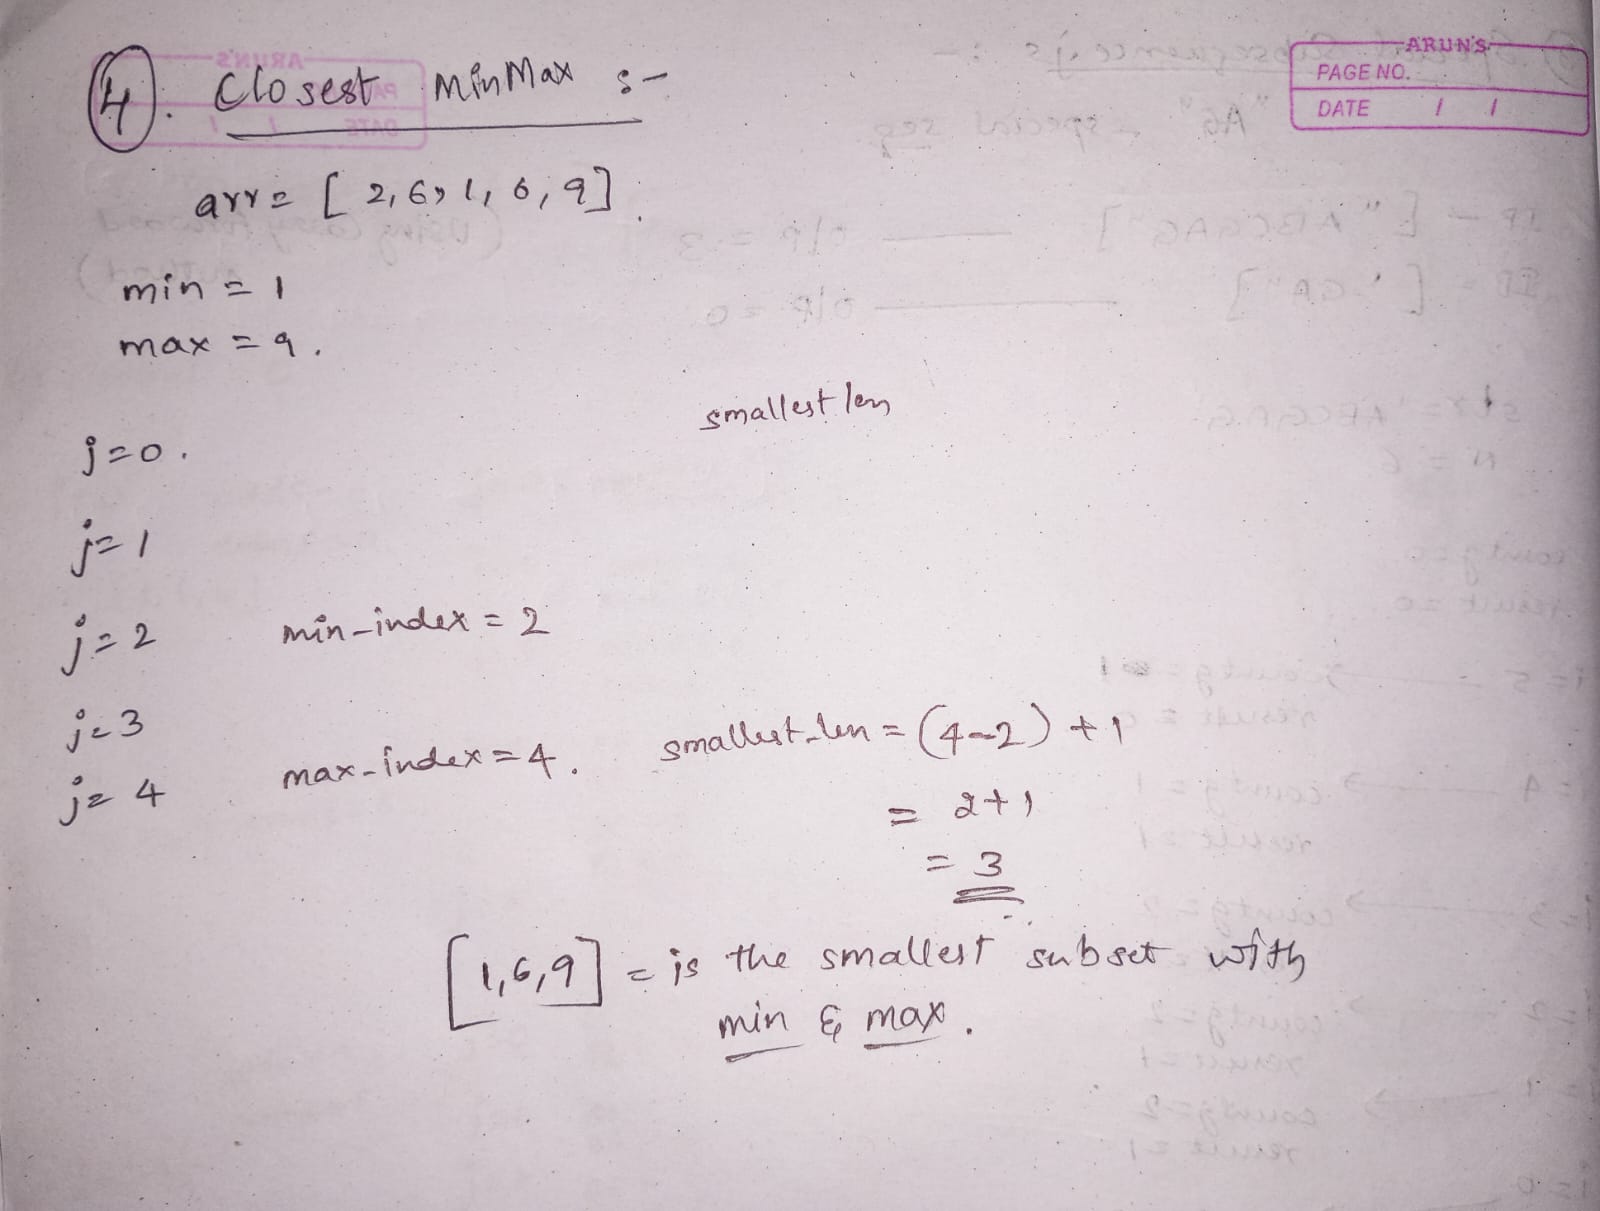 ARUN'S
PAGE NO.
DATE / /
4). Closest MinMax :-
arr = [2,6,1,6,9].
min = 1
max = 9.
smallest len
j=0.
j=1
j=2 min-index = 2
j=3
j=4 max-index=4. smallest_len = (4-2) + 1
= 2+1
= 3
[1,6,9] = is the smallest subset with
min & max.